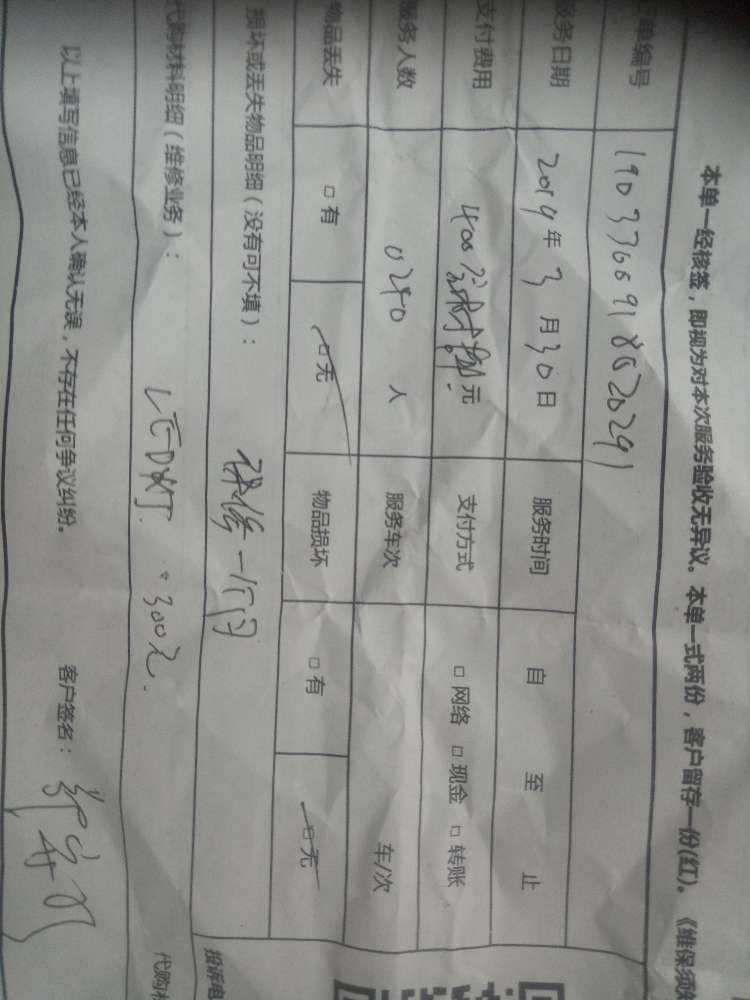 本单一经核签，即视为对本次服务验收无异议。本单一式两份，客户留存一份(红)。《维保须
单编号
服务日期 2019年3月30日 服务时间 自 至 止
支付费用 400 元 支付方式 □ 网络 □ 现金 □ 转账
服务人数 人 服务车次 车/次
物品丢失 □ 有 □ 无 物品损坏 □ 有 □ 无
损坏或丢失物品明细（没有可不填）：
代购材料明细（维修业务）： LED灯. 300元.
代购
投诉电
以上填写信息已经本人确认无误，不存在任何争议纠纷。 客户签名：